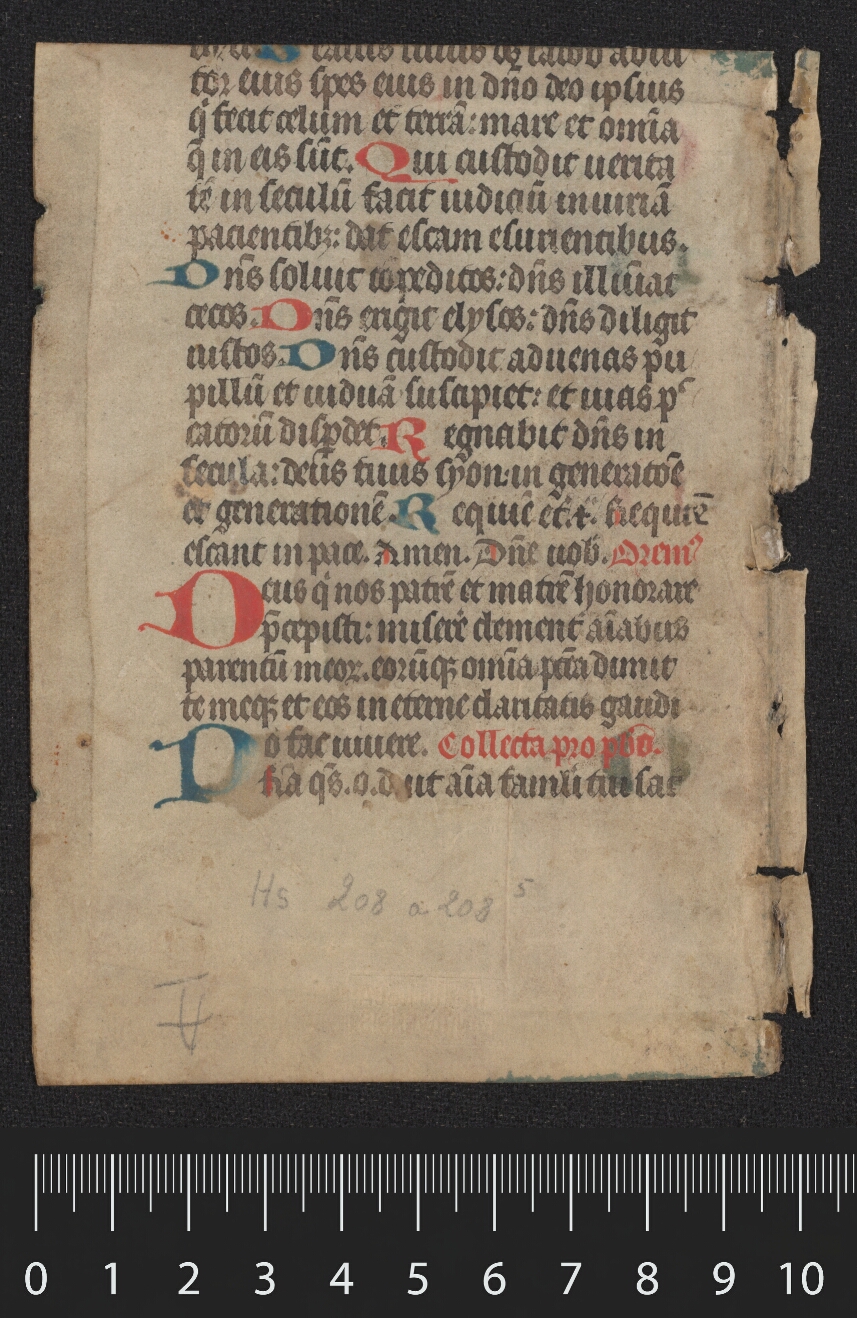 tor eius spes eius in dño deo ipsius
q̇ fecit celum et terrã: mare et omĩa
q̃ in eis sũt. Qui custodit uerita
tẽ in seculũ facit iudiciũ iniuriã
pacientibꝫ: dat escam esurientibus.
Dñs soluit cõpeditos: dñs illũiat
cecos. Dñs erigit elysos: dñs diligit
iustos. Dñs custodit aduenas pu
pillũ et uiduã suscipiet: et uias pc
catorũ disꝑdet. Regnabit dñs in
secula: deus tuus syon: in generacõe
et generationẽ. Requiẽ et̃.ꝟ. Requiẽ
escant in pace. Amen. Dñe uob̃. Orem᷒
Deus q̇ nos patrẽ et matrẽ honorare
p̃cepisti: miserẽ clement̃ aĩabus
parentũ meoꝝ. eorũqꝫ omĩa pccã dimit
te meqꝫ et eos in eterne claritatis gaudi
o fac uiuere. Collecta pro pbrõ.
Pr̃a q̃s. o. d. ut aĩa famĩli tui sac
Hs 208 a 208 5